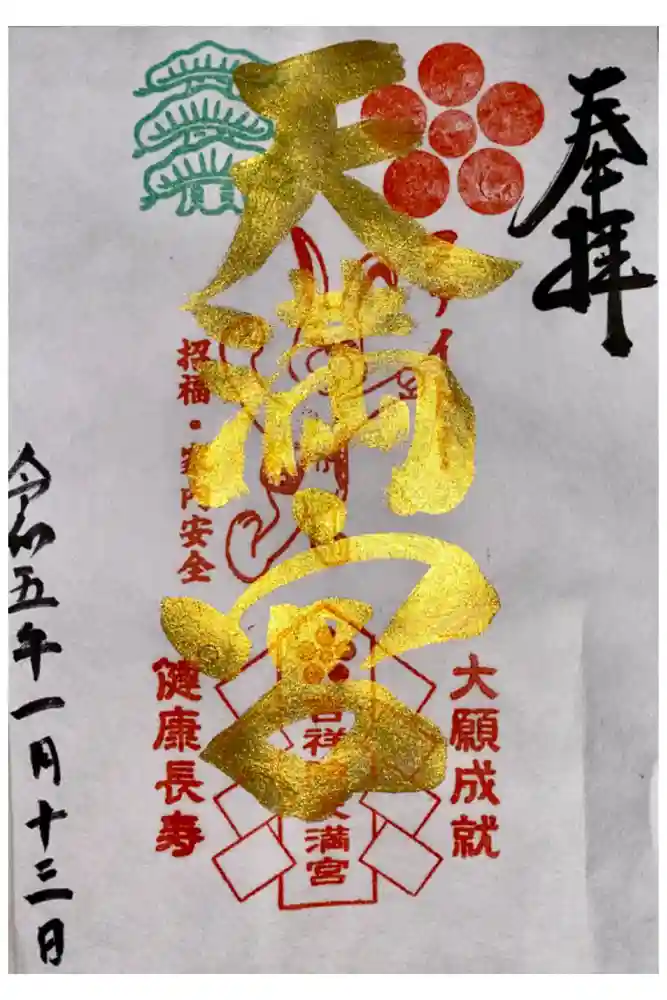 奉拝
天満宮
招福・家内安全
大願成就
健康長寿
令和五年一月十三日